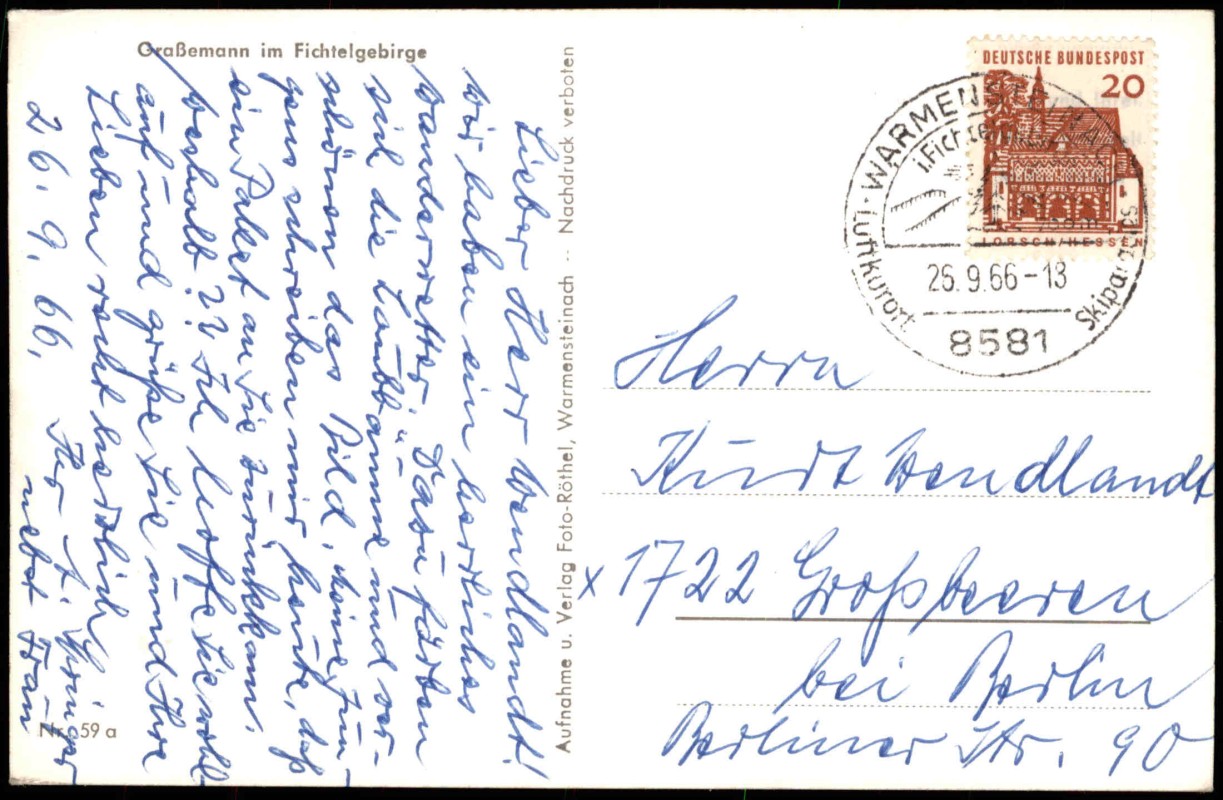 Graßemann im Fichtelgebirge
Lieber Herr Wendlandt!
Wir haben ein herrliches
Wanderwetter. Dazu färben
sich die Laubbäume und ver-
schönen das Bild. Meine Jun-
gens schreiben mir heute, daß
ein Paket an Sie zurückkam.
Weshalb?? Ich hoffe Sie wohl-
auf und grüße Sie und Ihre
Lieben recht herzlich.
26. 9. 66. Ihr
nebst Frau
Nr. 59 a
Aufnahme u. Verlag Foto-Röthel, Warmensteinach -- Nachdruck verboten
DEUTSCHE BUNDESPOST
20
LORSCH/HESSEN
Luftkurort · WARMENST
i. Fichtel
26.9.66-18
8581
Herrn
Kurt Wendlandt
x 1722 Großbeeren
bei Berlin
Berliner Str. 90